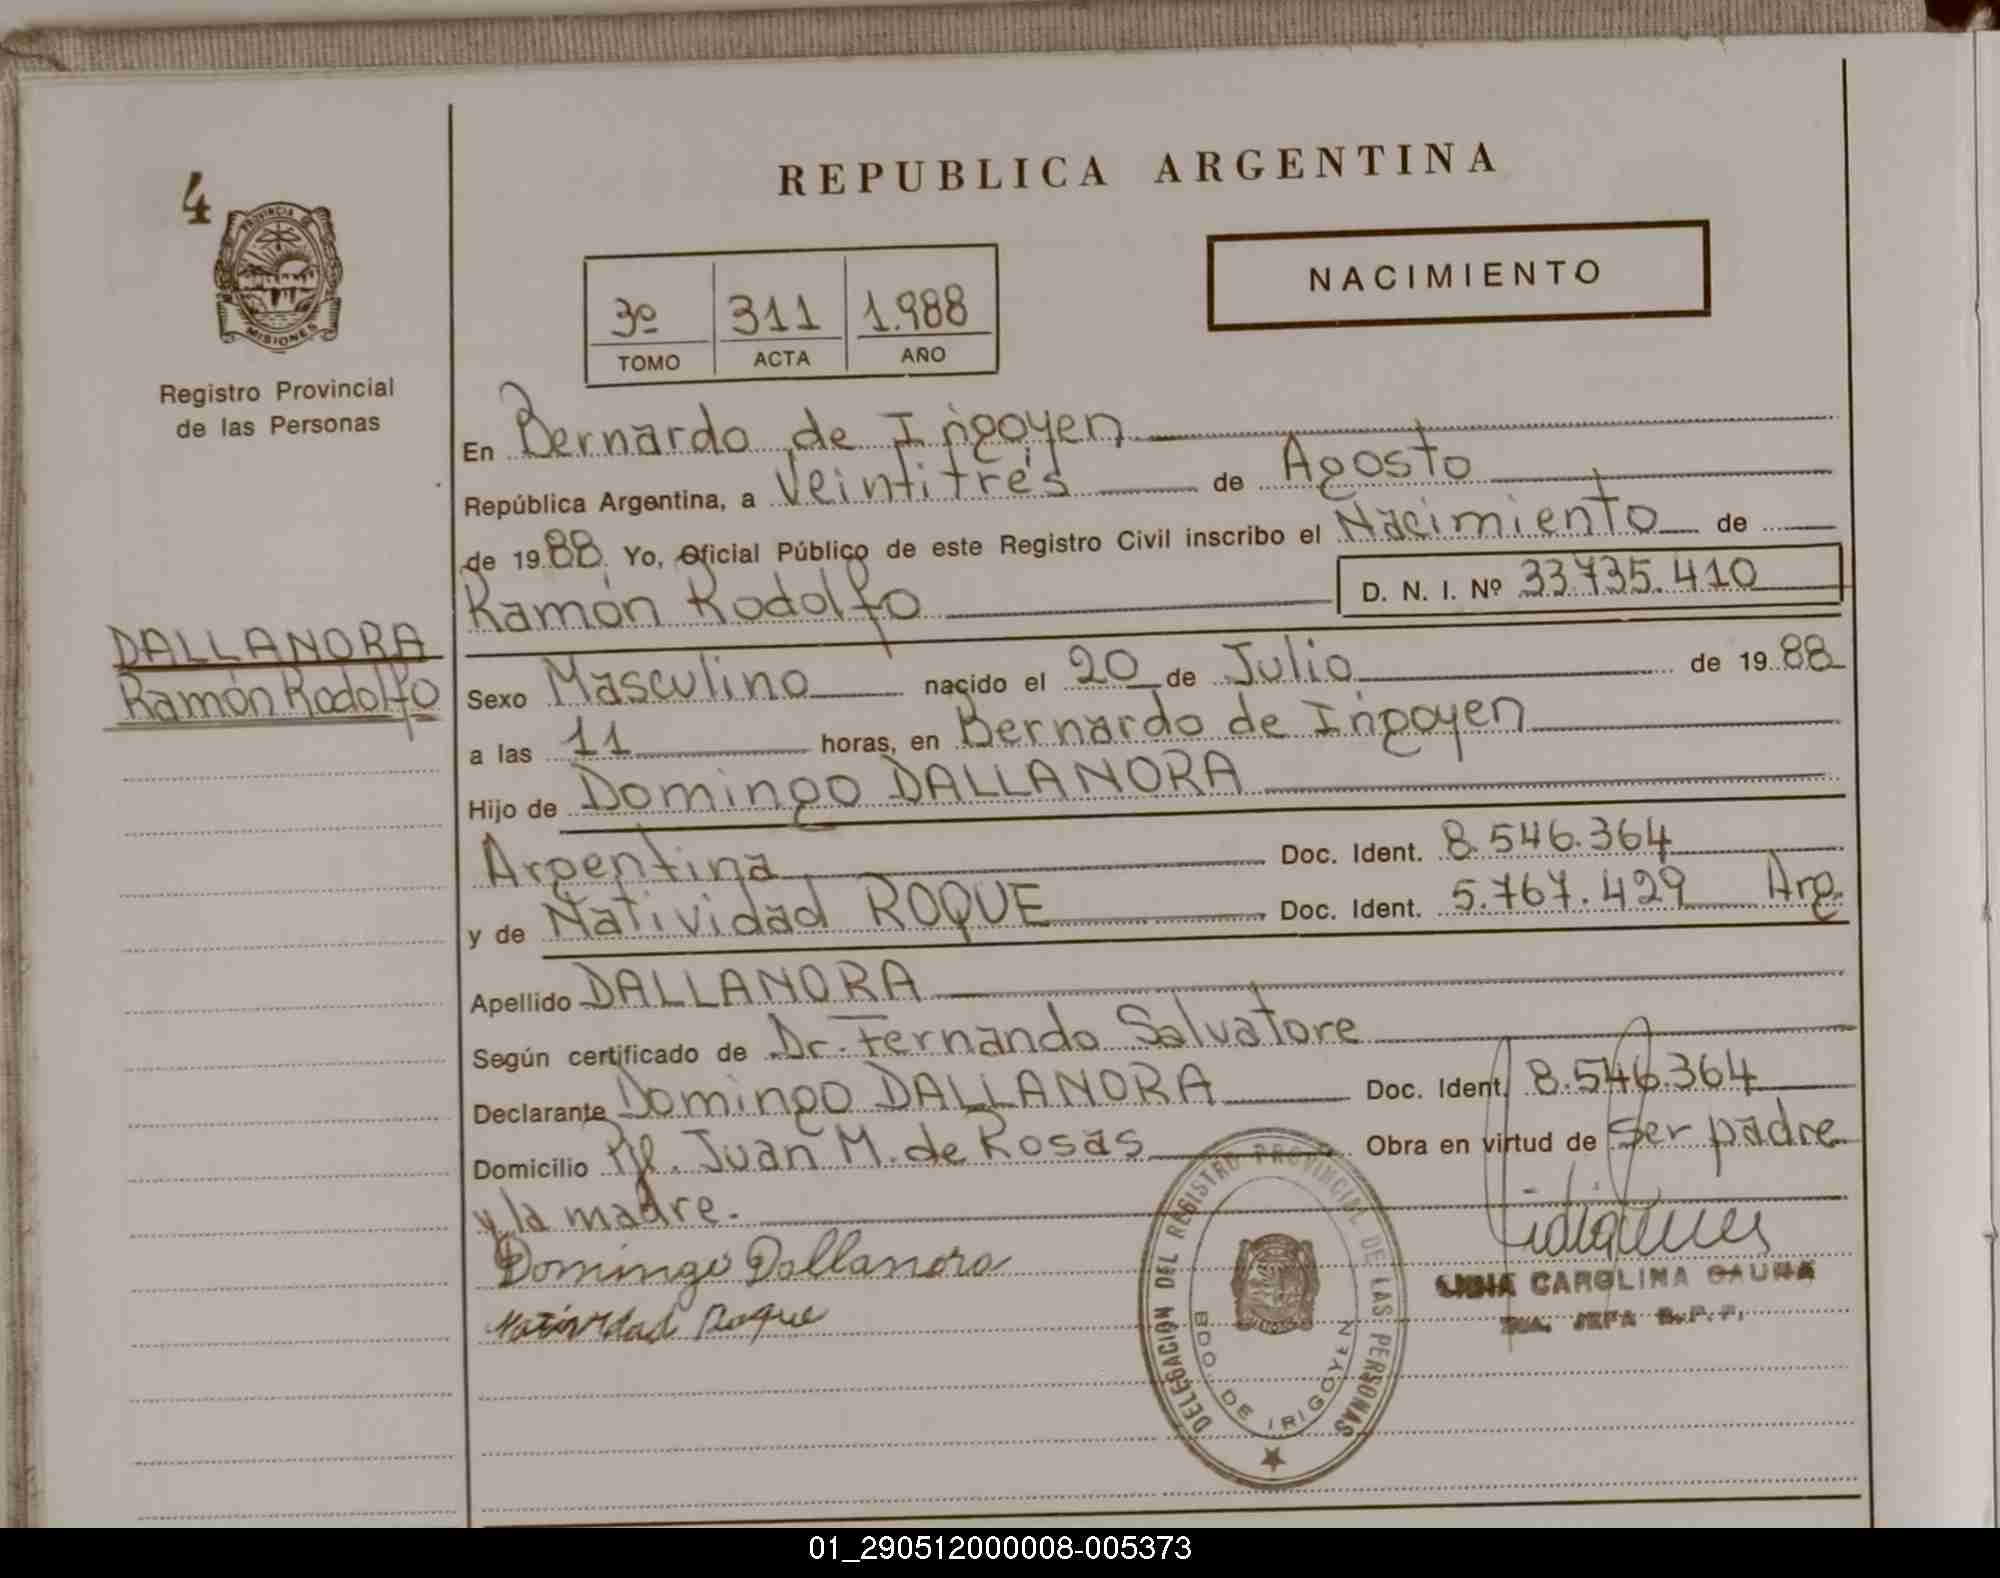 4
PROVINCIA DE
MISIONES
Registro Provincial
de las Personas
DALLANORA
Ramón Rodolfo
REPUBLICA ARGENTINA
NACIMIENTO
3º 311 1.988
TOMO ACTA AÑO
En Bernardo de Irigoyen
República Argentina, a Veintitrés de Agosto
de 1988 Yo, Oficial Público de este Registro Civil inscribo el Nacimiento de
Ramón Rodolfo D. N. I. Nº 33.735.410
Sexo Masculino nacido el 20 de Julio de 1988
a las 11 horas, en Bernardo de Irigoyen
Hijo de Domingo DALLANORA
Argentina Doc. Ident. 8.546.364
y de Natividad ROQUE Doc. Ident. 5.767.429 Arg.
Apellido DALLANORA
Según certificado de Dr. Fernando Salvatore
Declarante Domingo DALLANORA Doc. Ident. 8.546.364
Domicilio Juan M. de Rosas Obra en virtud de ser padre
y la madre.
Domingo Dallanora
Natividad Roque
DELEGACION DEL REGISTRO PROVINCIAL DE LAS PERSONAS
BDO. DE IRIGOYEN
CAROLINA
JEFA R.P.P.
01_290512000008-005373